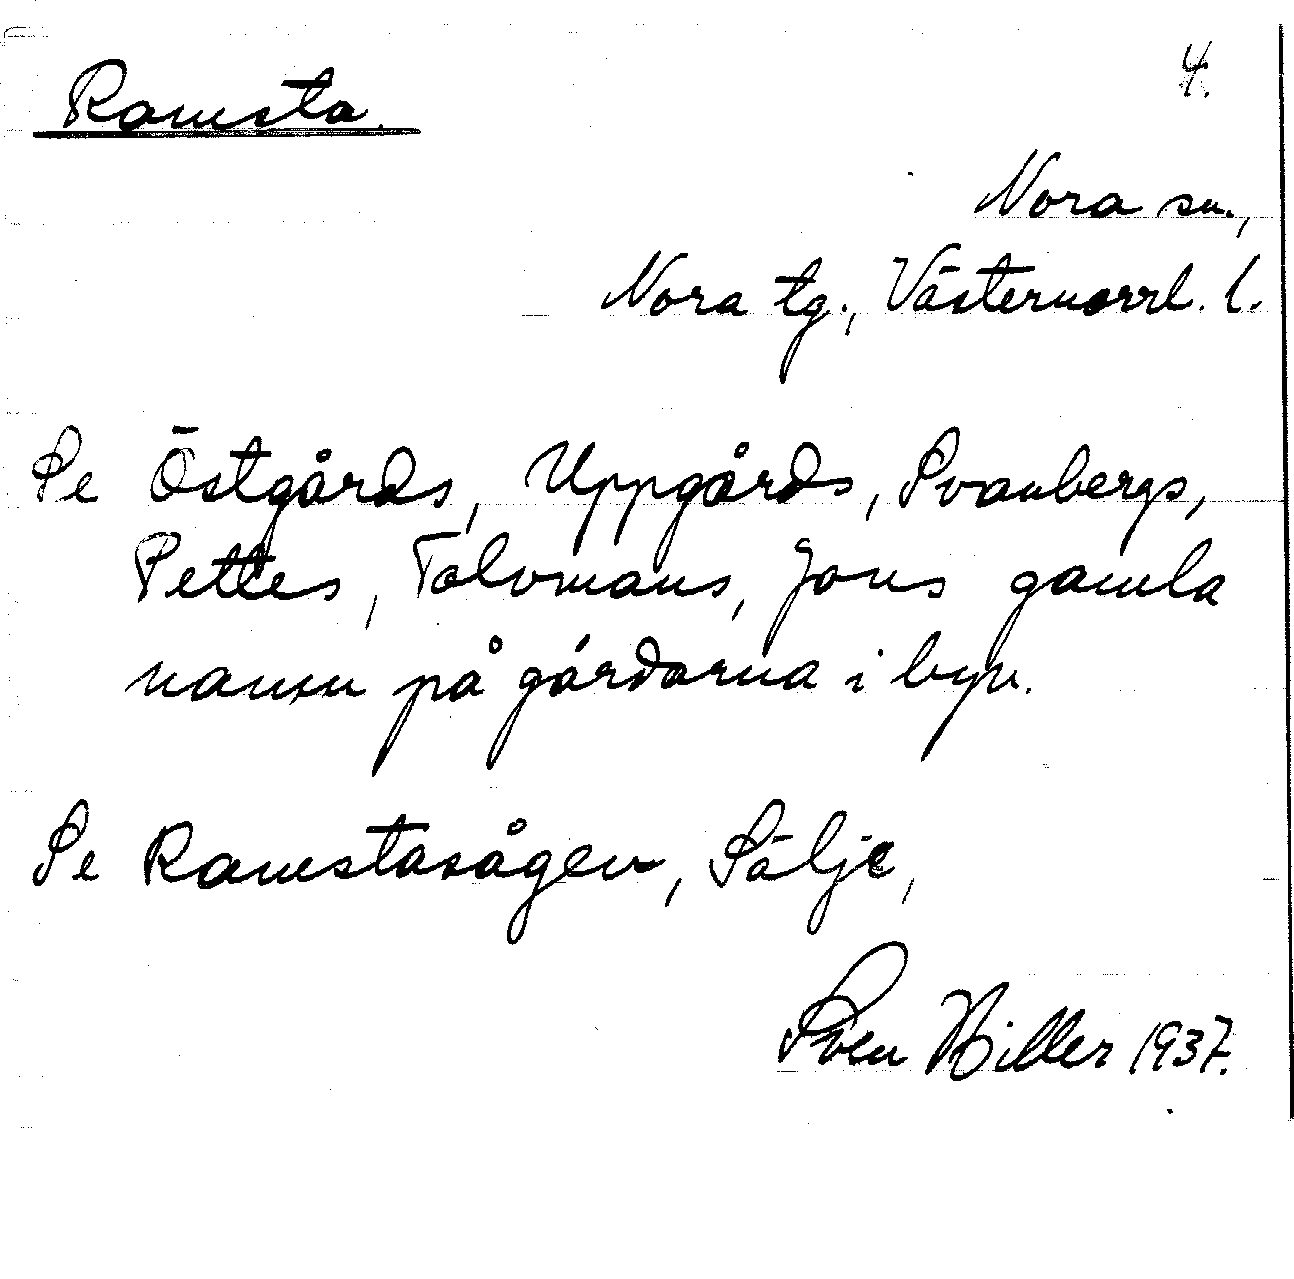 Ramsta.
4.
Nora sn.,
Nora tg., Västernorrl. l.
Se Östgårds, Uppgårds, Svanbergs,
Pettes, Tolvmans, Jons gamla
namn på gårdarna i byn.
Se Ramstasågen, Sälje,
Sven Hiller 1937.